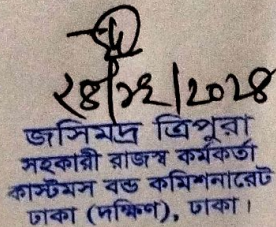 ২৪/১২/২০২৪
জসিমদ্র ত্রিপুরা
সহকারী রাজস্ব কর্মকর্তা
কাস্টমস বন্ড কমিশনারেট
ঢাকা (দক্ষিণ), ঢাকা।